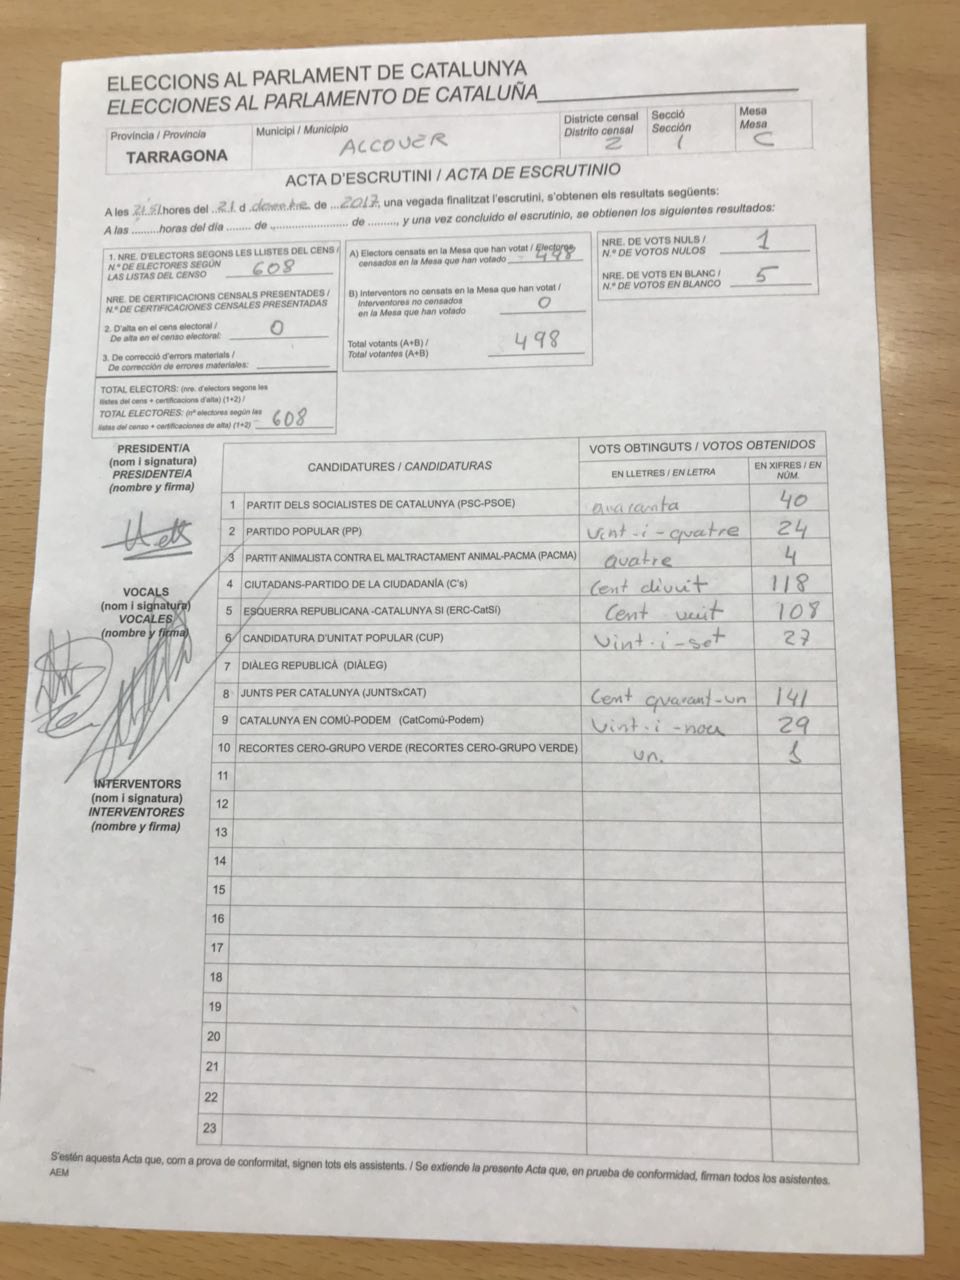 ELECCIONS AL PARLAMENT DE CATALUNYA
ELECCIONES AL PARLAMENTO DE CATALUÑA
Provincia / Provincia
TARRAGONA
Municipi / Municipio
ALCOVER
Districte censal
Distrito censal
2
Secció
Sección
1
Mesa
Mesa
C
ACTA D'ESCRUTINI / ACTA DE ESCRUTINIO
A les hores del 21 d desembre de ...2017, una vegada finalitzat l'escrutini, s'obtenen els resultats següents:
A las .........horas del día ....... de .................... de ........., y una vez concluido el escrutinio, se obtienen los siguientes resultados:
1. NRE. D'ELECTORS SEGONS LES LLISTES DEL CENS /
N.º DE ELECTORES SEGÚN
LAS LISTAS DEL CENSO 608
NRE. DE CERTIFICACIONS CENSALS PRESENTADES /
N.º DE CERTIFICACIONES CENSALES PRESENTADAS
2. D'alta en el cens electoral /
De alta en el censo electoral: 0
3. De correcció d'errors materials /
De corrección de errores materiales:
TOTAL ELECTORS: (nre. d'electors segons les
llistes del cens + certificacions d'alta) (1+2) /
TOTAL ELECTORES: (nº electores según las
listas del censo + certificaciones de alta) (1+2) 608
A) Electors censats en la Mesa que han votat / Electores
censados en la Mesa que han votado 498
B) Interventors no censats en la Mesa que han votat /
Interventores no censados
en la Mesa que han votado 0
Total votants (A+B) /
Total votantes (A+B) 498
NRE. DE VOTS NULS /
N.º DE VOTOS NULOS 1
NRE. DE VOTS EN BLANC /
N.º DE VOTOS EN BLANCO 5
PRESIDENT/A
(nom i signatura)
PRESIDENTE/A
(nombre y firma)
VOCALS
(nom i signatura)
VOCALES
(nombre y firma)
INTERVENTORS
(nom i signatura)
INTERVENTORES
(nombre y firma)
CANDIDATURES / CANDIDATURAS
VOTS OBTINGUTS / VOTOS OBTENIDOS
EN LLETRES / EN LETRA
EN XIFRES / EN
NÚM.
1 PARTIT DELS SOCIALISTES DE CATALUNYA (PSC-PSOE) quaranta 40
2 PARTIDO POPULAR (PP) Vint-i-quatre 24
3 PARTIT ANIMALISTA CONTRA EL MALTRACTAMENT ANIMAL-PACMA (PACMA) quatre 4
4 CIUTADANS-PARTIDO DE LA CIUDADANÍA (C's) Cent divuit 118
5 ESQUERRA REPUBLICANA -CATALUNYA SI (ERC-CatSí) Cent vuit 108
6 CANDIDATURA D'UNITAT POPULAR (CUP) Vint-i-set 27
7 DIÀLEG REPUBLICÀ (DIÀLEG)
8 JUNTS PER CATALUNYA (JUNTSxCAT) Cent quarant-un 141
9 CATALUNYA EN COMÚ-PODEM (CatComú-Podem) Vint-i-nou 29
10 RECORTES CERO-GRUPO VERDE (RECORTES CERO-GRUPO VERDE) un. 1
11
12
13
14
15
16
17
18
19
20
21
22
23
S'estén aquesta Acta que, com a prova de conformitat, signen tots els assistents. / Se extiende la presente Acta que, en prueba de conformidad, firman todos los asistentes.
AEM